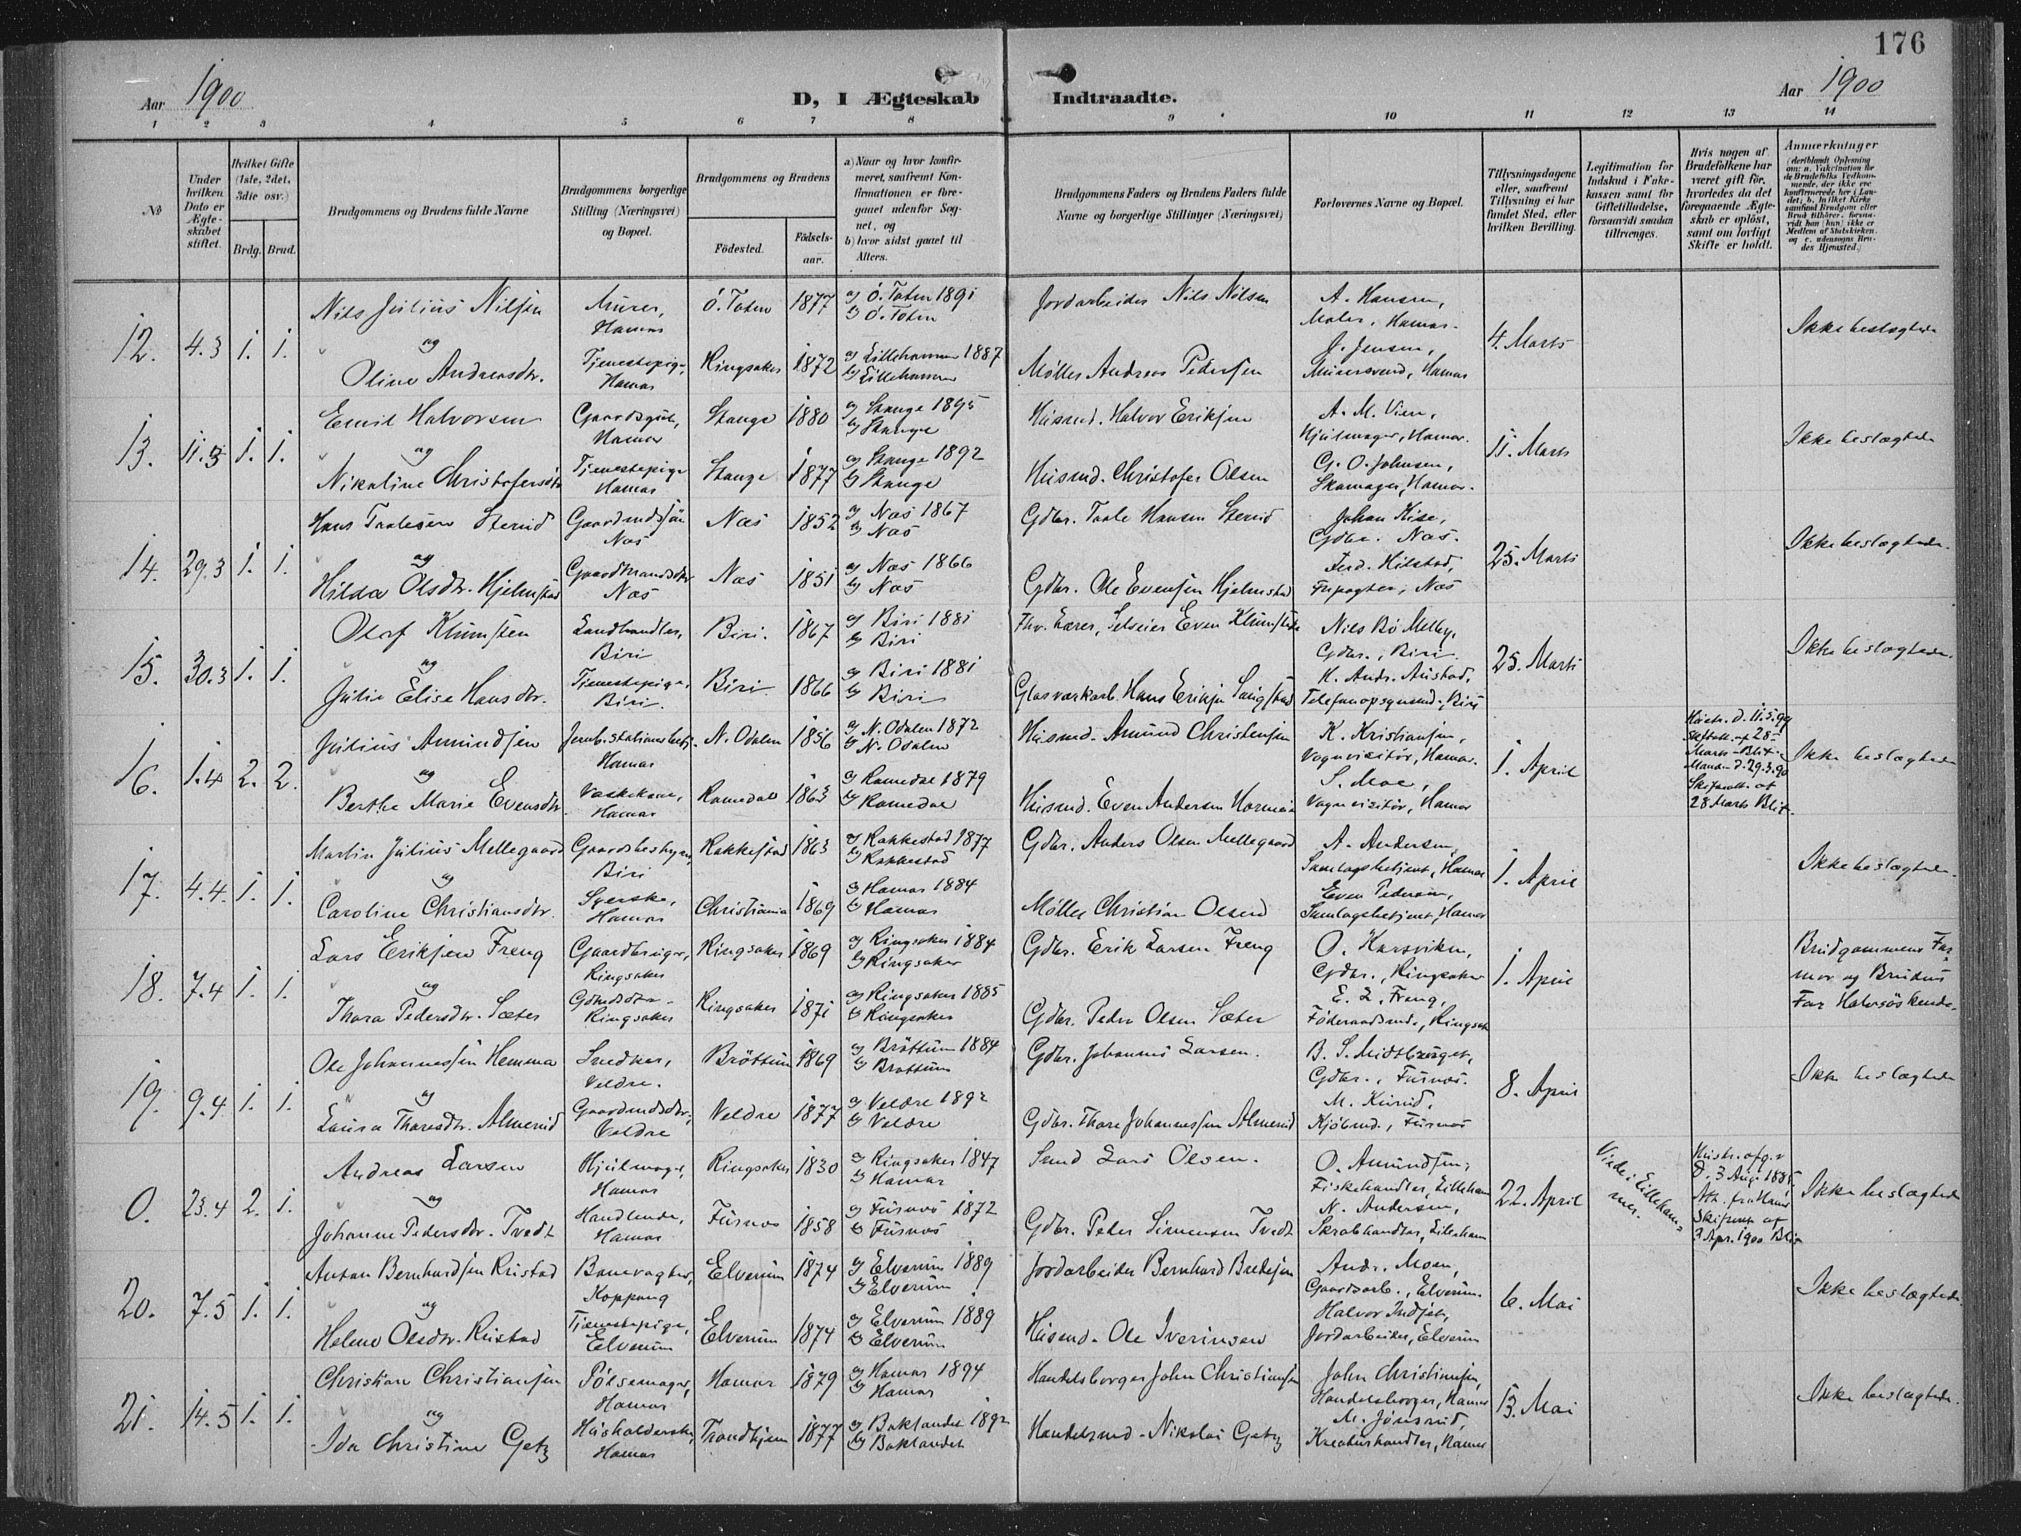 176
Aar 1900
D, I Ægteskab Indtraadte.
Aar 1900
1 2 3 4 5 6 7 8 9 10 11 12 13 14
No
Under hvilken Dato er Ægteskabet stiftet.
Hvilket Gifte (1ste, 2det, 3die osv.)
Brdg. Brud.
Brudgommens og Brudens fulde Navne
Brudgommens borgerlige Stilling (Næringsvei) og Bopæl.
Brudgommens og Brudens
Fødested.
Fødselsaar.
a) Naar og hvor konfirmeret, saafremt Konfirmationen er foregaaet udenfor Sognet, og
b) hvor sidst gaaet til Alters.
Brudgommens Faders og Brudens Faders fulde Navne og borgerlige Stillinger (Næringsvei)
Forlovernes Navne og Bopæl.
Tillysningsdagene eller, saafremt Tillysning ei har fundet Sted, efter hvilken Bevilling.
Legitimation for Indskud i Enkekassen samt for Giftetilladelse, forsaavidt saadan tiltrænges.
Hvis nogen af Brudefolkene har været gift før, hvorledes da det foregaaende Ægteskab er opløst, samt om lovligt Skifte er holdt.
Anmærkninger
12. 4.3 1. 1.
Nils Julius Nilsen
og
Oline Andreasdtr.
Murer, Hamar
Tjenestepige, Hamar
Ö. Toten 1877
Ringsaker 1872
a) Ö. Toten 1891
b) Ö. Toten
a) Lillehammer 1887
b) Lillehammer
Jordarbeider Nils Nilsen
Møller Andreas Pedersen
A. Hansen,
Maler, Hamar.
J. Jensen,
Murersvend, Hamar
4. Marts
Ikke beslægtede
13. 11.3 1. 1.
Emil Halvorsen
og
Nikoline Christofersdtr
Gaardsgut, Hamar
Tjenestepige Hamar
Stange 1880
Stange 1877
a) Stange 1895
b) Stange
a) Stange 1892
b) Stange
Husmd. Halvor Eriksen
Husmd. Christofer Olsen
A. M. Vien,
Hjulmager, Hamar.
G. O. Johnsen,
Skomager, Hamar.
11. Marts
Ikke beslægtede
14. 29.3 1. 1.
Hans Taalesen Sterud
og
Hilda Olsdtr. Hjelmstad
Gaardmdssön Næs
Gaardmandsdtr Næs
Næs 1852
Næs 1851
a) Næs 1867
b) Næs
a) Næs 1866
b) Næs
Gdbr. Taale Hansen Sterud
Gdbr. Ole Evensen Hjelmstad
Johan Kise,
Gdbr. Næs.
Ferd. Hilstad,
Næs
25. Marts
Ikke beslægtede.
15. 30.3 1. 1.
Olaf Klumsten
og
Julie Elise Hansdtr.
Landhandler, Biri
Tjenestepige, Biri.
Biri. 1867
Biri 1866
a) Biri 1881
b) Biri
a) Biri 1881
b) Biri
Fhv. Lærer, Selveier Even Klumsten
Glasværkarb. Hans Eriksen
Nils Bö Melby,
Gdbr., Biri.
K. Andr. Austad,
Biri
25. Marts
Ikke beslægtede.
16. 1.4 2. 2.
Julius Amundsen
og
Berthe Marie Evensdtr.
Jernb.stationsbetj. Hamar
Vaskekone, Hamar
N. Odalen 1856
Romedal 1863
a) N. Odalen 1872
b) N. Odalen
a) Romedal 1879
b) Romedal
Husmd. Amund Christensen
Husmd. Even Andersen
K. Kristiansen,
Vognvisitör, Hamar.
S. Moe,
Vognvisitör, Hamar
1. April
Hustr. d. 11.5.99
Skifteatt. af 28
Marts Blit.
Manden d. 29.3.90
Skifteatt. af
28 Marts Blit.
Ikke beslægtede
17. 4.4. 1. 1.
Martin Julius Mellegaard
og
Caroline Christiansdtr.
Gaardsbestyrer, Biri
Syerske, Hamar
Rakkestad 1863
Christiania 1869
a) Rakkestad 1877
b) Rakkestad
a) Hamar 1884
b) Hamar
Gdbr. Anders Olsen Mellegaard
Møller Christian Olsen
A. Andersen,
Samlagsbetjent, Hamar
Even Pedersen,
Samlagsbetjent, Hamar
1. April
Ikke beslægtede.
18. 7.4 1. 1.
Lars Eriksen Freng
og
Thora Pedersdtr. Sæter
Gaardbruger, Ringsaker
Gdmdsdtr. Ringsaker
Ringsaker 1869
Ringsaker 1871
a) Ringsaker 1884
b) Ringsaker
a) Ringsaker 1885
b) Ringsaker
Gdbr. Erik Larsen Freng
Gdbr. Peder Olsen Sæter
O. Karsviken,
Gdbr., Ringsaker
E. L. Freng,
Föderaadsmd., Ringsak
1. April
Brudgommens Farmor og Brudens Far Halvsöskende.
19. 9.4 1. 1.
Ole Johannessen Hemma
og
Laura Thoresdtr. Almerud
Snedker, Veldre.
Gaardmdsdtr., Veldre
Bröttum 1869
Veldre 1877
a) Bröttum 1884
b) Brottum
a) Veldre 1892
b) Veldre
Gdbr. Johannes Larsen.
Gdbr. Thore Johannessen Almerud
B. S. Midtberget,
Gdbr., Furnæs.
M. Kurud,
Kjöbmd., Furnæs
8. April
Ikke beslægtede
0. 23.4 2. 1.
Andreas Larsen
og
Johanne Pedersdtr. Tvedt
Hjulmager, Hamar
Handlende, Hamar
Ringsaker 1830
Furnæs 1858
a) Ringsaker 1847
b) Hamar
a) Furnæs 1872
b) Furnæs
Smed Lars Olsen.
Gdbr. Peder Simensen Tvedt
O. Amundsen,
Fiskehandler, Lilleham
N. Andersen,
Skrabhandler, Lilleham
22. April
Viede i Lillehammer.
Hustr. afg.
d. 3 Aug. 1885.
Att. fra
Skifterett af
3 Apr. 1900 Blit
Ikke beslægtede
20. 7.5 1. 1.
Anton Bernhardsen Rustad
og
Helene Olsdtr. Rustad
Banevogter, Koppang
Tjenestepige, Elverum
Elverum 1874
Elverum 1874
a) Elverum 1889
b) Elverum
a) Elverum 1889
b) Elverum
Jordarbeider Bernhard Bredesen
Husmd. Ole Iverinsen
Andr. Moen,
Gaardsarb., Elverum.
Halvor Indset,
Jordarbeider, Elverum
6. Mai
Ikke beslægtede.
21. 14.5 1. 1.
Christian Christiansen
og
Ida Christine Getz
Pölsemager, Hamar
Husholderske, Hamar
Hamar 1879
Trondhjem 1877
a) Hamar 1894
b) Hamar
a) Baklandet 1892
b) Baklandet
Handelsborger John Christiansen
Handelsmd. Nikolai Getz
John Christiansen,
Handelsborger, Hamar
M. Jönsrud,
Kreaturhandler, Hamar
13. Mai
Ikke beslægtede.